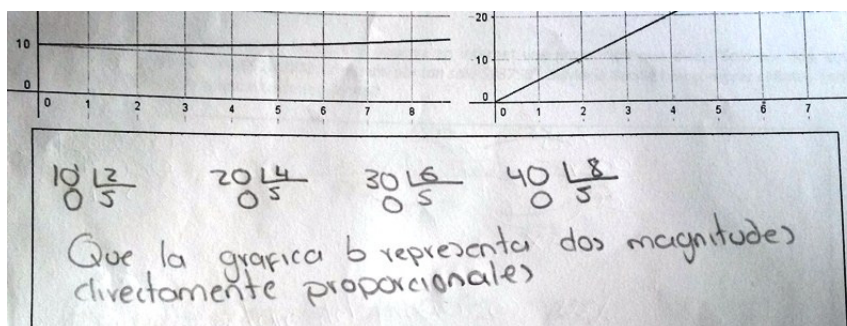 20
10
10
0
0
0 1 2 3 4 5 6 7 8
0 1 2 3 4 5 6 7
10 2
0 5
20 4
0 5
30 6
0 5
40 8
0 5
Que la grafica b representa dos magnitudes
directamente proporcionales